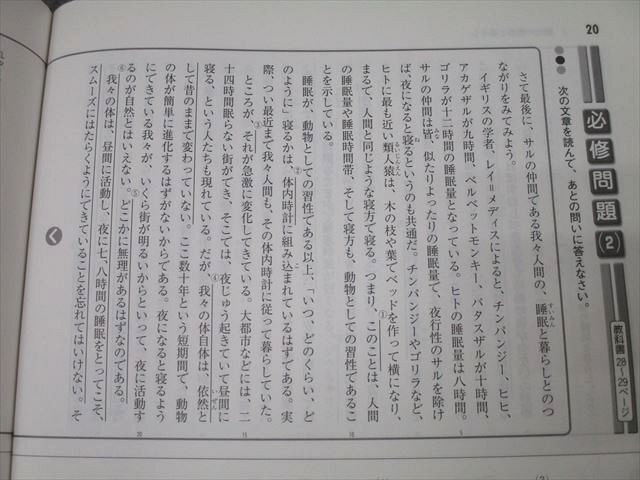 20
必修問題(2)
教科書28〜29ページ
次の文章を読んで、あとの問いに答えなさい。
さて最後に、サルの仲間である我々人間の、睡眠と暮らしとのつ
ながりをみてみよう。
イギリスの学者、レイ＝メディスによると、チンパンジー、ヒヒ、
アカゲザルが九時間、ベルベットモンキー、パタスザルが十時間、
ゴリラが十二時間の睡眠量となっている。ヒトの睡眠量は八時間。
サルの仲間は皆、似たりよったりの睡眠量で、夜行性のサルを除け
ば、夜になると寝るというのも共通だ。チンパンジーやゴリラなど、
ヒトに最も近い類人猿は、木の枝や葉でベッドを作って横になり、
まるで、人間と同じような寝方で寝る。つまり、①このことは、人間
の睡眠量や睡眠時間帯、そして寝方も、動物としての習性であるこ
とを示している。
睡眠が、動物としての習性である以上、「いつ、どのくらい、ど
のように」寝るかは、②体内時計に組み込まれているはずである。実
際、つい最近まで我々人間も、その体内時計に従って暮らしていた。
ところが、③それが急激に変化してきている。大都市などには、二
十四時間眠らない街ができ、そこでは、夜じゅう起きていて昼間に
寝る、という人たちも現れている。だが、④我々の体自体は、依然と
して昔のままで変わっていない。ここ数十年という短期間で、動物
の体が簡単に進化するはずがないからである。夜になると寝るよう
にできている我々が、いくら街が明るいからといって、夜に活動す
るのが自然とはいえない。⑤どこかに無理があるはずなのである。
⑥我々の体は、昼間に活動し、夜に七、八時間の睡眠をとってこそ、
スムーズにはたらくようにできていることを忘れてはいけない。そ